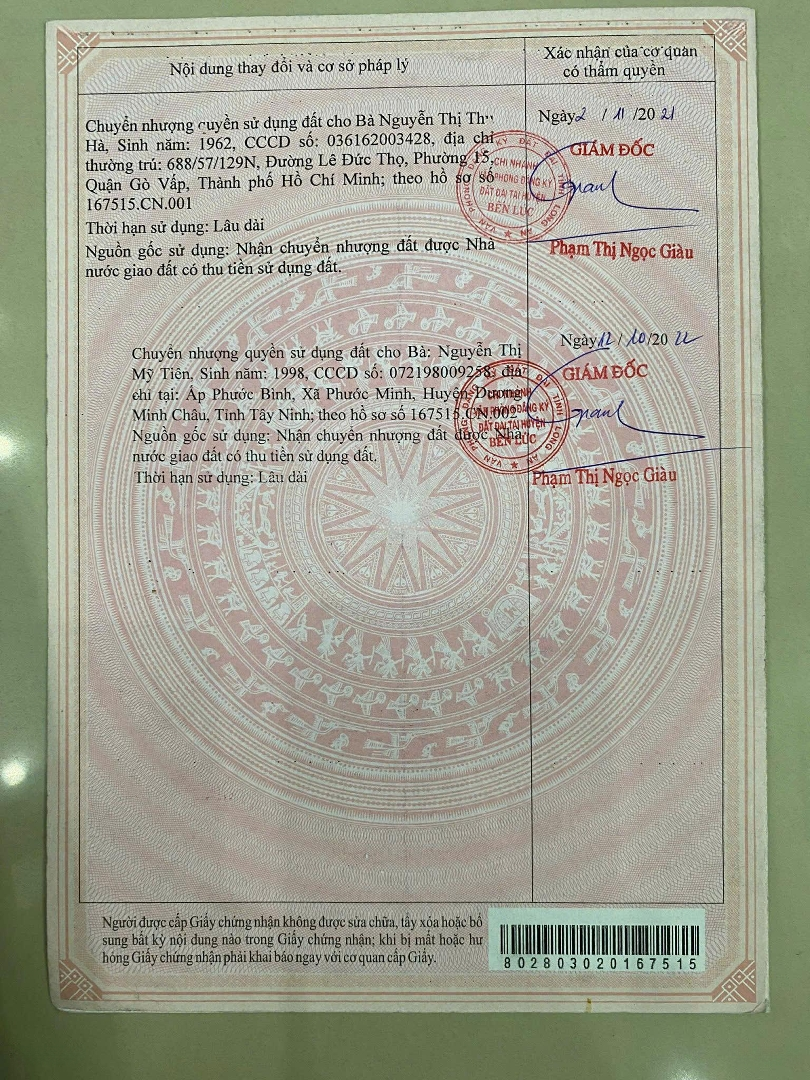 Nội dung thay đổi và cơ sở pháp lý
Xác nhận của cơ quan
có thẩm quyền
Chuyển nhượng quyền sử dụng đất cho Bà Nguyễn Thị Thu
Hà, Sinh năm: 1962, CCCD số: 036162003428, địa chỉ
thường trú: 688/57/129N, Đường Lê Đức Thọ, Phường 15,
Quận Gò Vấp, Thành phố Hồ Chí Minh; theo hồ sơ số
167515.CN.001
Thời hạn sử dụng: Lâu dài
Nguồn gốc sử dụng: Nhận chuyển nhượng đất được Nhà
nước giao đất có thu tiền sử dụng đất.
Ngày 2 / 11 /20 21
GIÁM ĐỐC
CHI NHÁNH
VĂN PHÒNG ĐĂNG KÝ
ĐẤT ĐAI TẠI HUYỆN
BẾN LỨC
VĂN PHÒNG ĐĂNG KÝ ĐẤT ĐAI TỈNH LONG AN
Phạm Thị Ngọc Giàu
Chuyển nhượng quyền sử dụng đất cho Bà: Nguyễn Thị
Mỹ Tiên, Sinh năm: 1998, CCCD số: 072198009258, địa
chỉ tại: Ấp Phước Bình, Xã Phước Minh, Huyện Dương
Minh Châu, Tỉnh Tây Ninh; theo hồ sơ số 167515.CN.002
Nguồn gốc sử dụng: Nhận chuyển nhượng đất được Nhà
nước giao đất có thu tiền sử dụng đất.
Thời hạn sử dụng: Lâu dài
Ngày 12 / 10 /20 22
GIÁM ĐỐC
CHI NHÁNH
VĂN PHÒNG ĐĂNG KÝ
ĐẤT ĐAI TẠI HUYỆN
BẾN LỨC
VĂN PHÒNG ĐĂNG KÝ ĐẤT ĐAI TỈNH LONG AN
Phạm Thị Ngọc Giàu
Người được cấp Giấy chứng nhận không được sửa chữa, tẩy xóa hoặc bổ
sung bất kỳ nội dung nào trong Giấy chứng nhận; khi bị mất hoặc hư
hỏng Giấy chứng nhận phải khai báo ngay với cơ quan cấp Giấy.
802803020167515